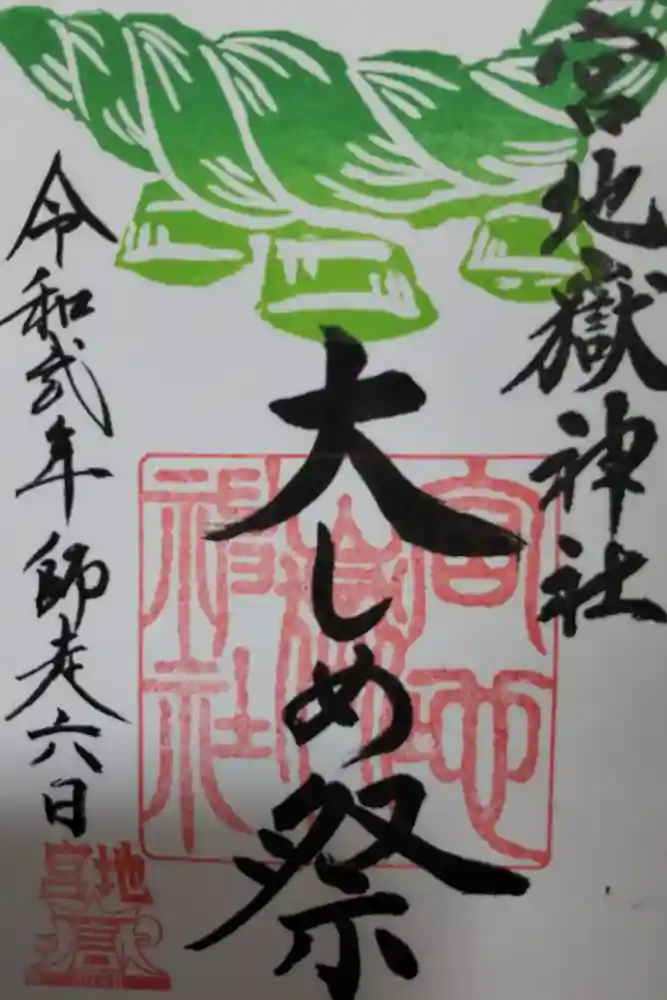 宮地嶽神社
大しめ祭
令和弐年師走六日
宮地嶽神社
宮地嶽